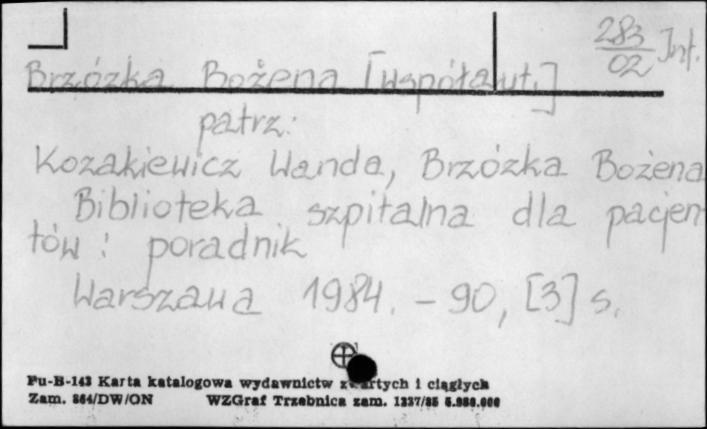 283/02 Int.
Brzózka Bożena [współaut.]
patrz:
Kozakiewicz Wanda, Brzózka Bożena
Biblioteka szpitalna dla pacjen
tów : poradnik
Warszawa 1984. - 90, [3] s.
Pu-B-143 Karta katalogowa wydawnictw zwartych i ciągłych
Zam. 864/DW/ON WZGraf Trzebnica zam. 1337/85 5.000.000